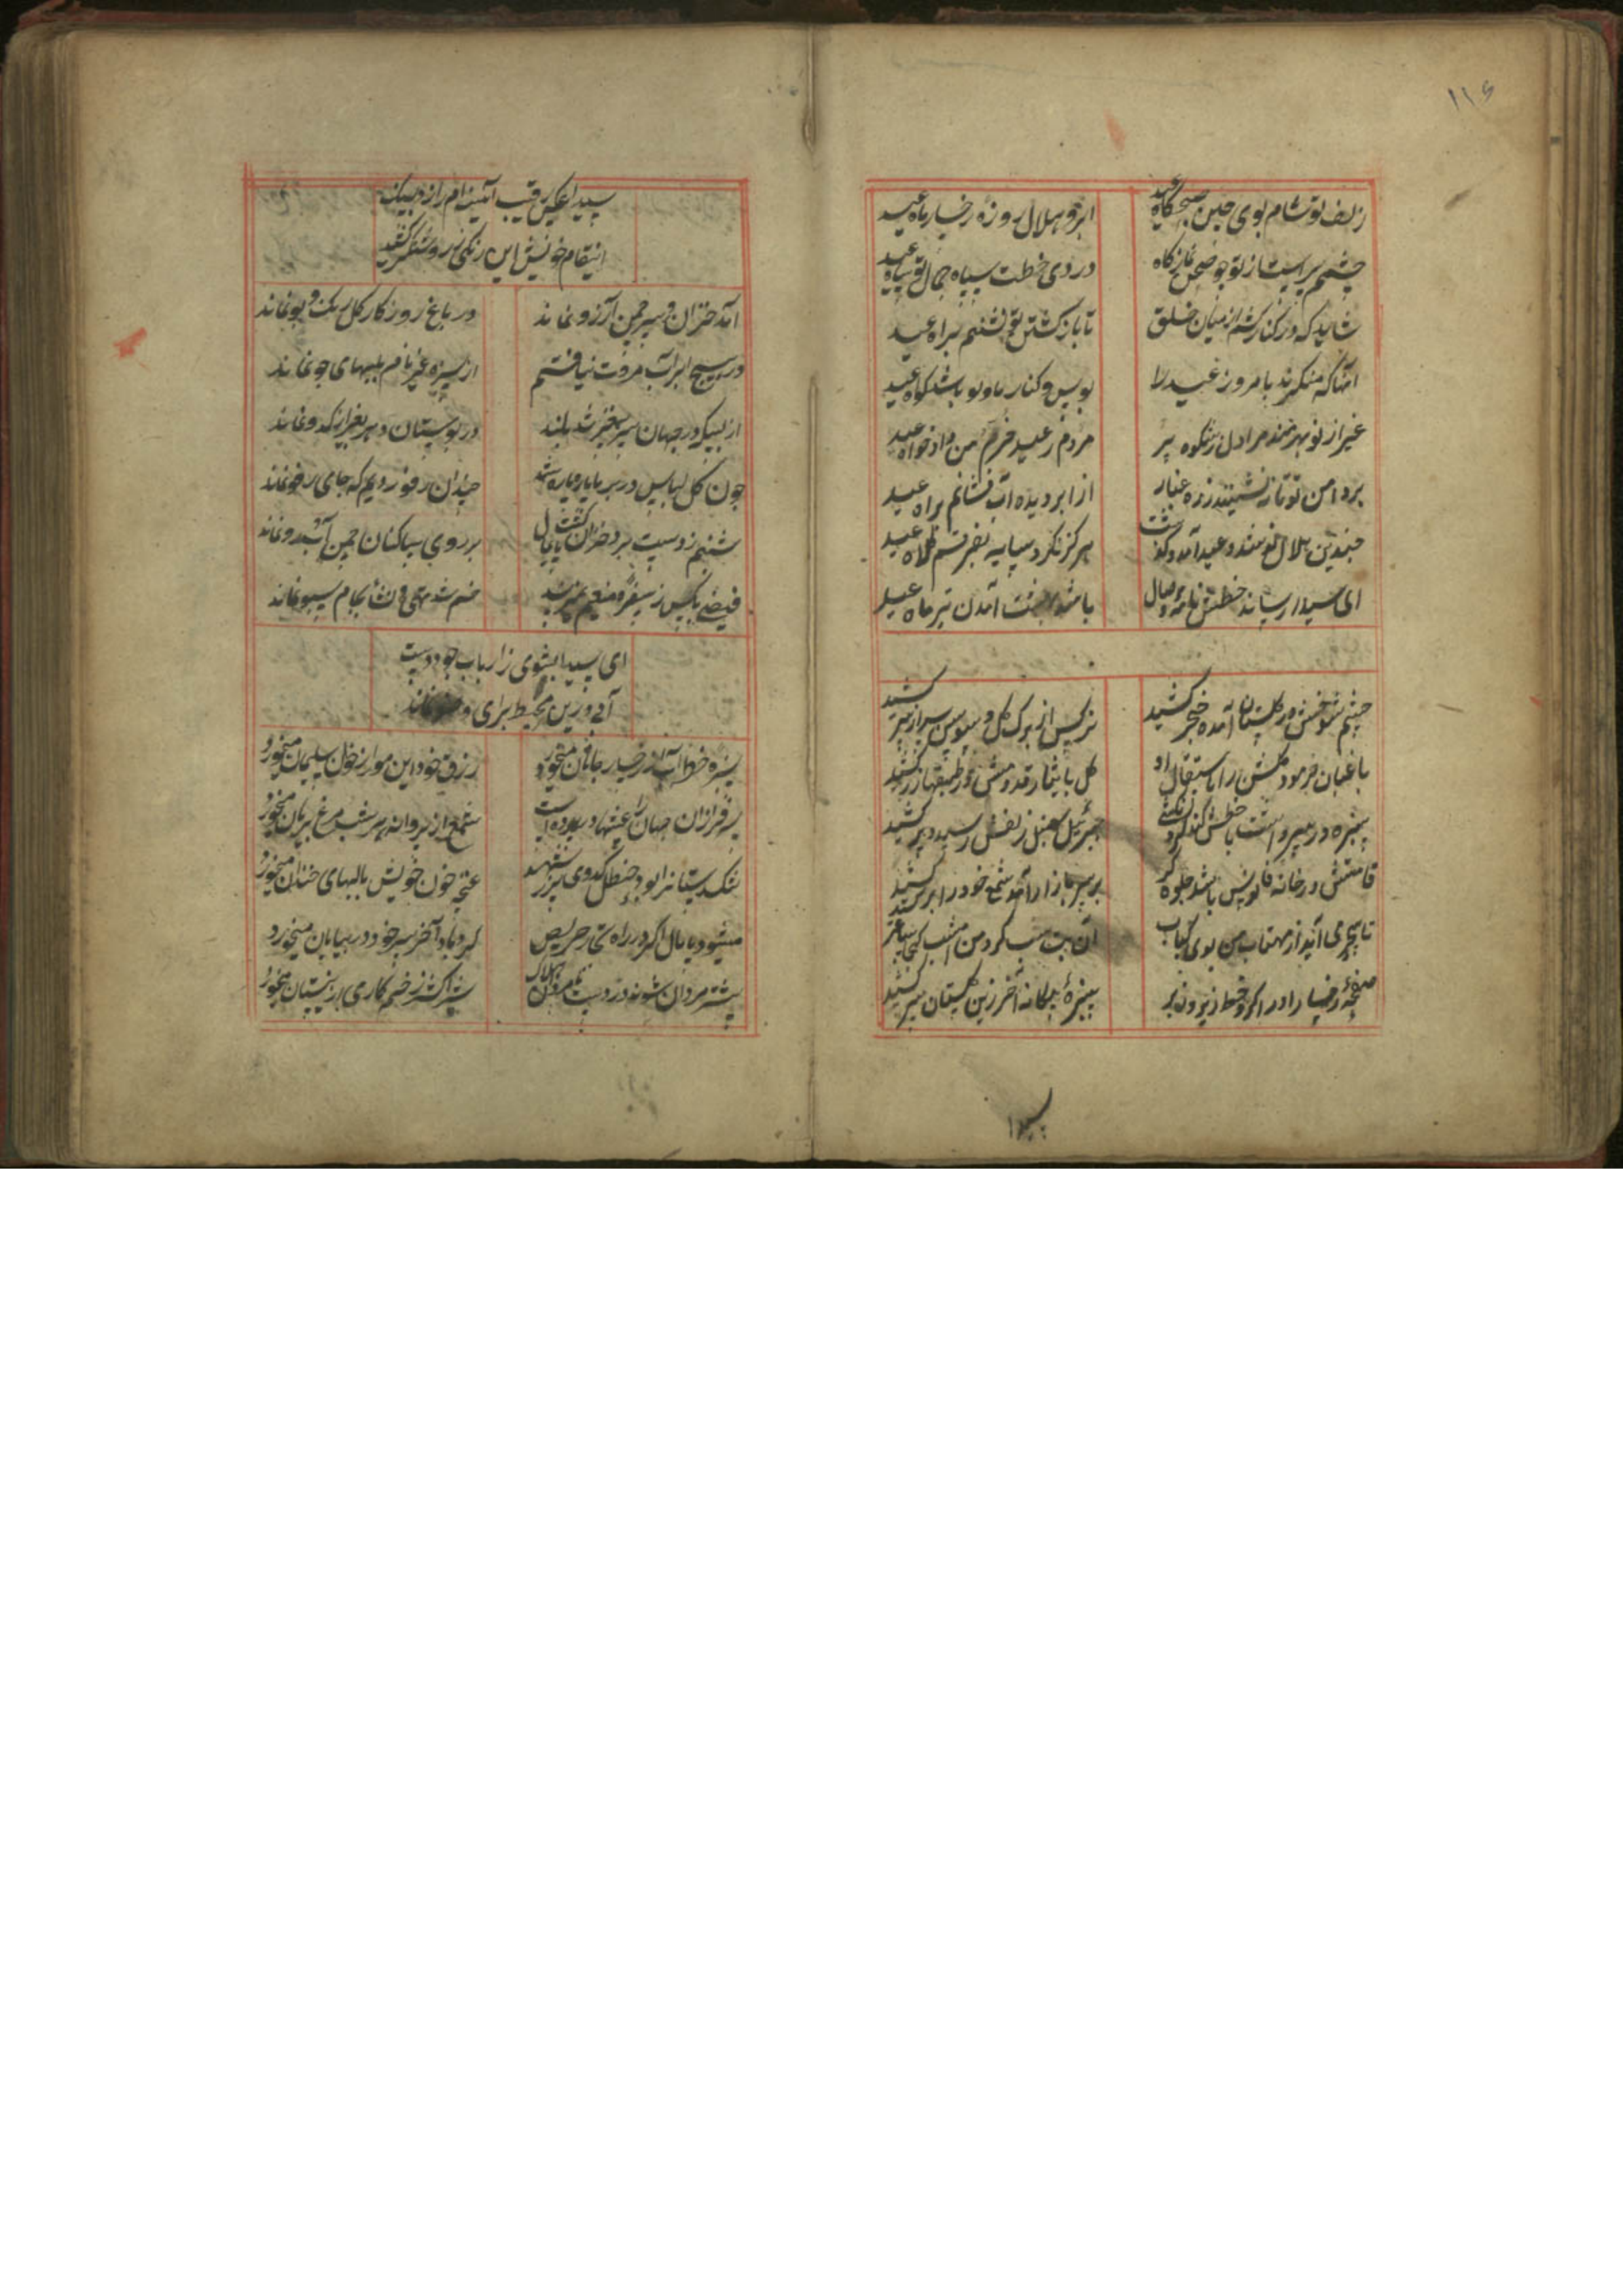 ۱۱۶
زلف تو شام بوی جبین صبحگاه عید
ابرو هلال روزه رخسار ماه عید
چشم پر است از تو چو صحن نمازگاه
در دی خطت سپاه جمال تو شاه عید
شاید که در کنار کشم از میان خلق
تا بازگشتن تو نشینم براه عید
آنها که منکرند بامروز عید را
بوس و کنار ما و تو باشد گواه عید
غیر از تو بهره‌مند مرا دل ز شکوه پر
مردم ز عید خرم من دادخواه عید
بر دامن تو تا ننشیند ز ره غبار
از ابر دیده آب فشانم براه عید
چندین هلال نو شد و عید آمد و گذشت
هرگز نکرد سایه بفرقم کلاه عید
ای سیدا رساند خطش نامه وصال
باشد آمدن تیر ماه عید
چشم شوخش در گلستان آمد خنجر کشید
نرگس از برگ گل و سوسن سپر از سر کشید
باغبان فرمود گلشن را باستقبال او
گل بایثار قدومش در طبقها زر کشید
سبزه در سیر و است با خطش کند
جبرئیل سنبل زلفش رسید و پر کشید
قامتش در خانه فانوس باشد جلوه گر
بر سر بازار آمد شمع خود را بر کشید
تا سحر می آید از مهتاب من بوی کباب
آن بت شب گرد من امشب کجا ساغر کشید
صفحه رخسار او را گرد خط زیر و زبر
سبزه بیگانه آخر زین گلستان سر کشید
سیدا
سیدا عکس رقیب آئینه ام را زد بسنگ
انتقام خویش این زنگی ز روشنگر کشید
آمد خزان و سیر چمن آرزو نماند
در باغ روزگار گل رنگ و بو نماند
در هیچ ابر آب مروت نیافتم
از سبزه غیر نام بلبهای جو نماند
از بسکه در جهان سر بی مغز شد بلند
در بوستان دهر بغیر از کدو نماند
چون گل لباس در بر ما پاره پاره شد
چندان رفو زدیم که جای رفو نماند
شبنم ز دست برد خزان گشت پایمال
بر روی ساکنان چمن آبرو نماند
فیضی بکس ز سفره منعم نمیرسد
خم شد تهی و نشأ بجام سبو نماند
ای سیدا بشوی ز ارباب جود دست
آبی درین محیط برای وضو نماند
سبزه خط آب از رخسار جانان میخورد
رزق خود این مور از خوان سلیمان میخورد
سرفرازان جهان را عیشها در پرده است
شمع از پروانه هر شب مرغ بریان میخورد
تنگدستانرا بود حنظل کدوی پر ز شهد
غنچه خون خویش با لبهای خندان میخورد
میشود پامال اگر در راه حریص
گردباد آخر سر خود در بیابان میخورد
بیشتر مردان شوند در دست نامردان هلاک
شیر اکثر زخم کاری از نیستان میخورد